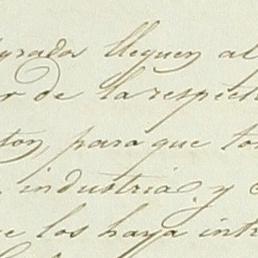 grada lleguen al
r de la respect
ton, para que to
industria, y c
e los haya intr